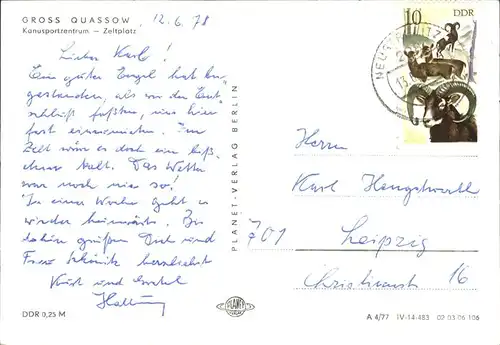 GROSS QUASSOW, 12.6.78
Kanusportzentrum — Zeltplatz
Lieber Karl!
Ein guter Engel hat bei
gestanden, als wir den Ent-
schluß faßten, uns hier
fest einzumieten. Im
Zelt wäre es doch ein bißchen
kalt. Das Wetter
war noch nie so!
In einer Woche geht es
wieder heimwärts. Bis
dahin grüßen Dich und
Frau herzlichst
Kurt und
DDR 0,25 M
PLANET-VERLAG BERLIN
10 DDR
NEUSTRELITZ
Herrn
Karl
701 Leipzig
16
PLANET
A 4/77 IV-14-483 02 03 06 106